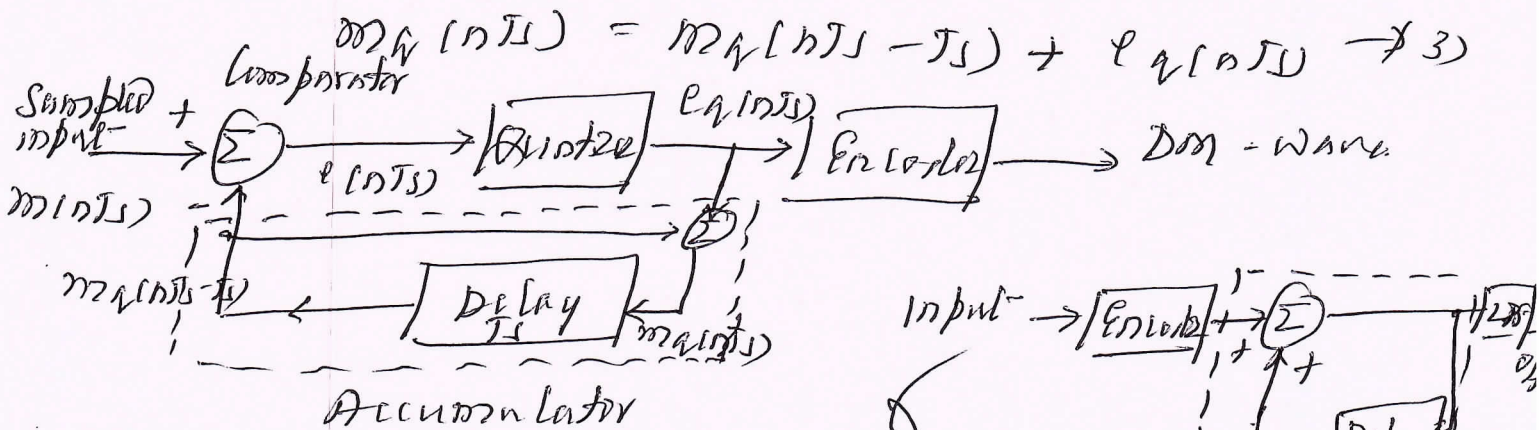 mq(nTs) = mq(nTs - Ts) + eq(nTs) → 3)
Comparator
Sampled +
input
Σ
e(nTs)
Quintzer
eq(nTs)
Encoder
DM - wave.
m(nTs)
Σ
mq(nTs-Ts)
Delay
Ts
mq(nTs)
Accumulator
input
Encoder
+
Σ
+
+